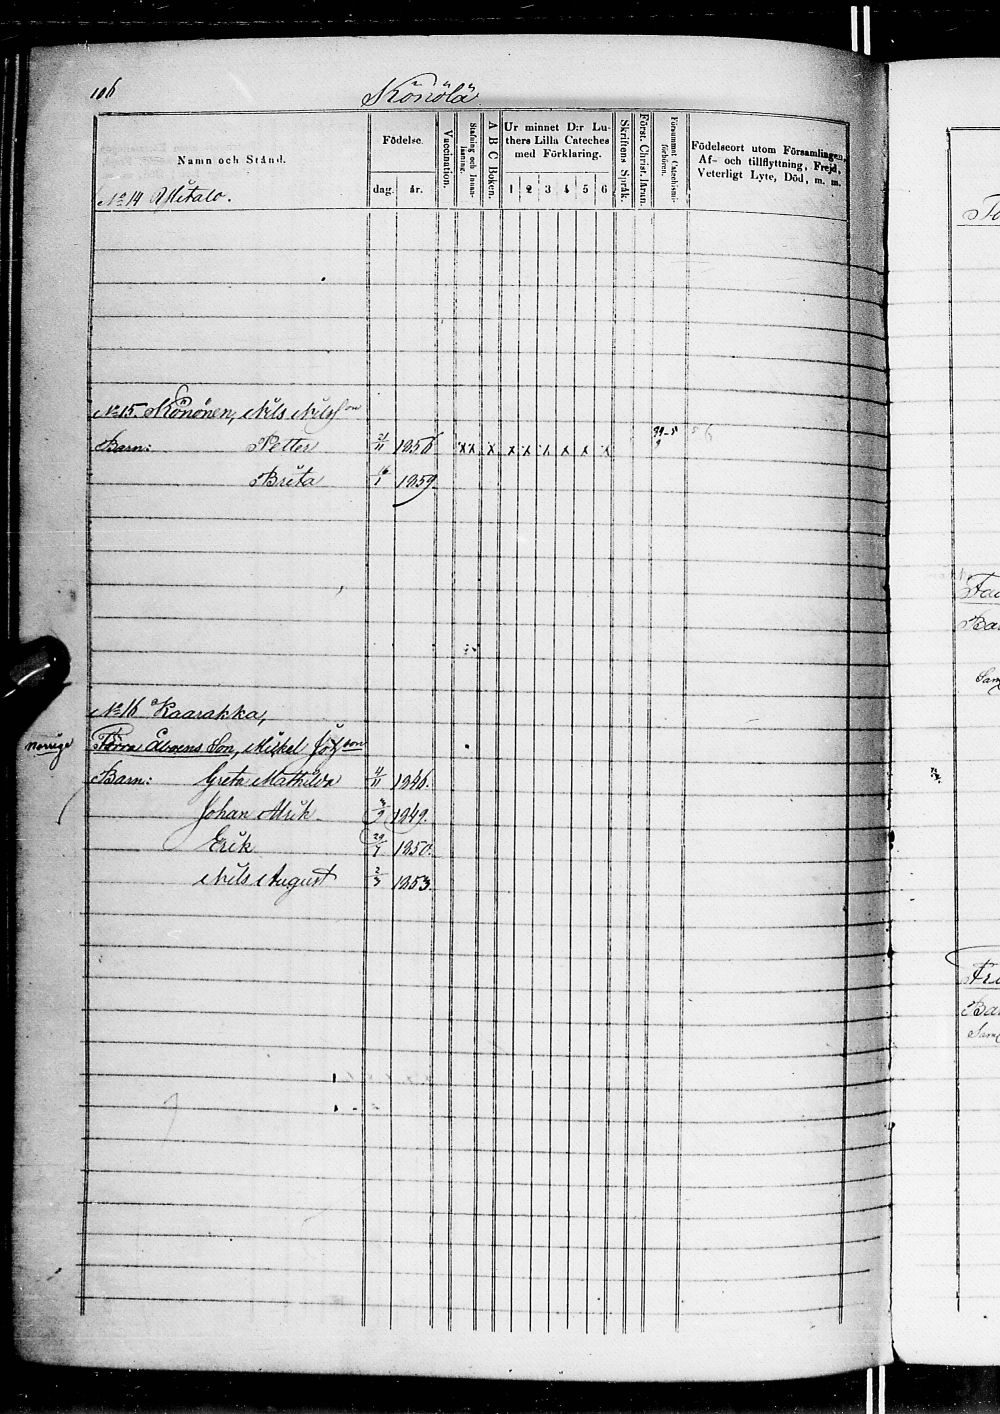 106
Könölä
Namn och Stånd.
Födelse
dag.
år.
Vaccination.
Stafning och Innanläsning.
A B C Boken.
Ur minnet D:r Luthers Lilla Cateches med Förklaring.
1 2 3 4 5 6
Skriftens Språk.
Först. Christ. läran.
Försummat Catechismiförhören.
Födelseort utom Församlingen, Af- och tillflyttning, Frejd, Veterligt Lyte, Död, m. m.
No 14 Alatalo.
No 15 Könönen, Nils Nilsson
Barn: Petter 21/11 1856 x x x x x x x x x
Brita 16/1 1859.
No 16 Kaarakka,
Norrige
Son, Mickel
Barn: Greta Mathilda 11/11 1846.
Johan 3/9 1849.
Erik 29/7 1850.
Nils August 2/3 1853.